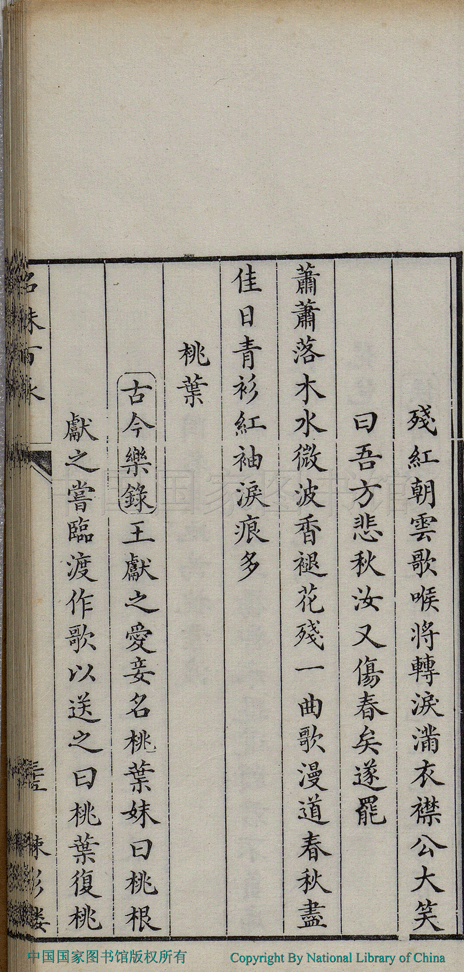 殘紅朝雲歌喉將轉淚滿衣襟公大笑
曰吾方悲秋汝又傷春矣遂罷
蕭蕭落木水微波香褪花殘一曲歌漫道春秋盡
佳日青衫紅袖淚痕多
桃葉
古今樂錄王獻之愛妾名桃葉妹曰桃根
獻之嘗臨渡作歌以送之曰桃葉復桃
中国国家图书馆版权所有
Copyright By National Library of China